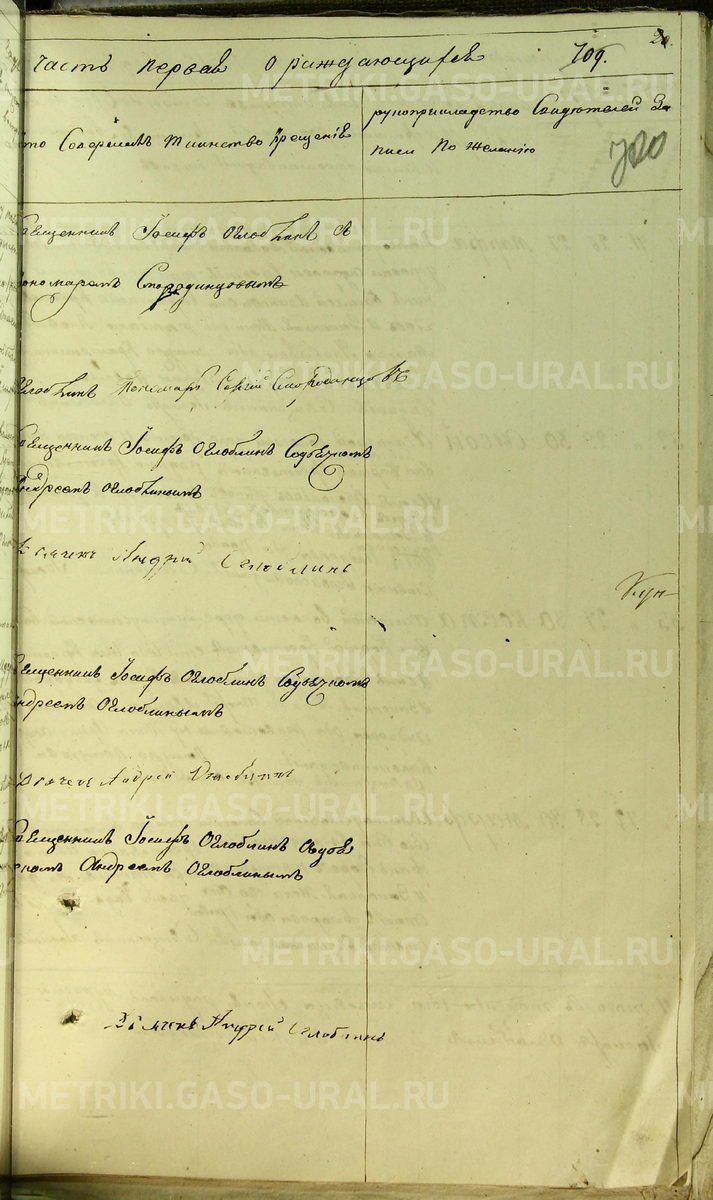 20.
часть первая о раждающихся 709.
кто Совершалъ таинство крещенiя
рукоприкладство Свидетелей За
писи По желанiю
720
Священникъ Iосифъ Оглоблинъ съ
пономаремъ Смородинцовымъ
Оглоблинъ Пономарь Сергiй Смородинцовъ
Священникъ Iосифъ Оглоблинъ Содьячкомъ
Андреемъ Оглоблинымъ
Дьячекъ Андрей Оглоблинъ
Кун
Священникъ Iосифъ Оглоблинъ Содьячкомъ
Андреемъ Оглоблинымъ
Дьячекъ Андрей Оглоблинъ
Священникъ Iосифъ Оглоблинъ содья
чкомъ Андреемъ Оглоблинымъ
Дьячекъ Андрей Оглоблинъ
METRIKI.GASO-URAL.RU